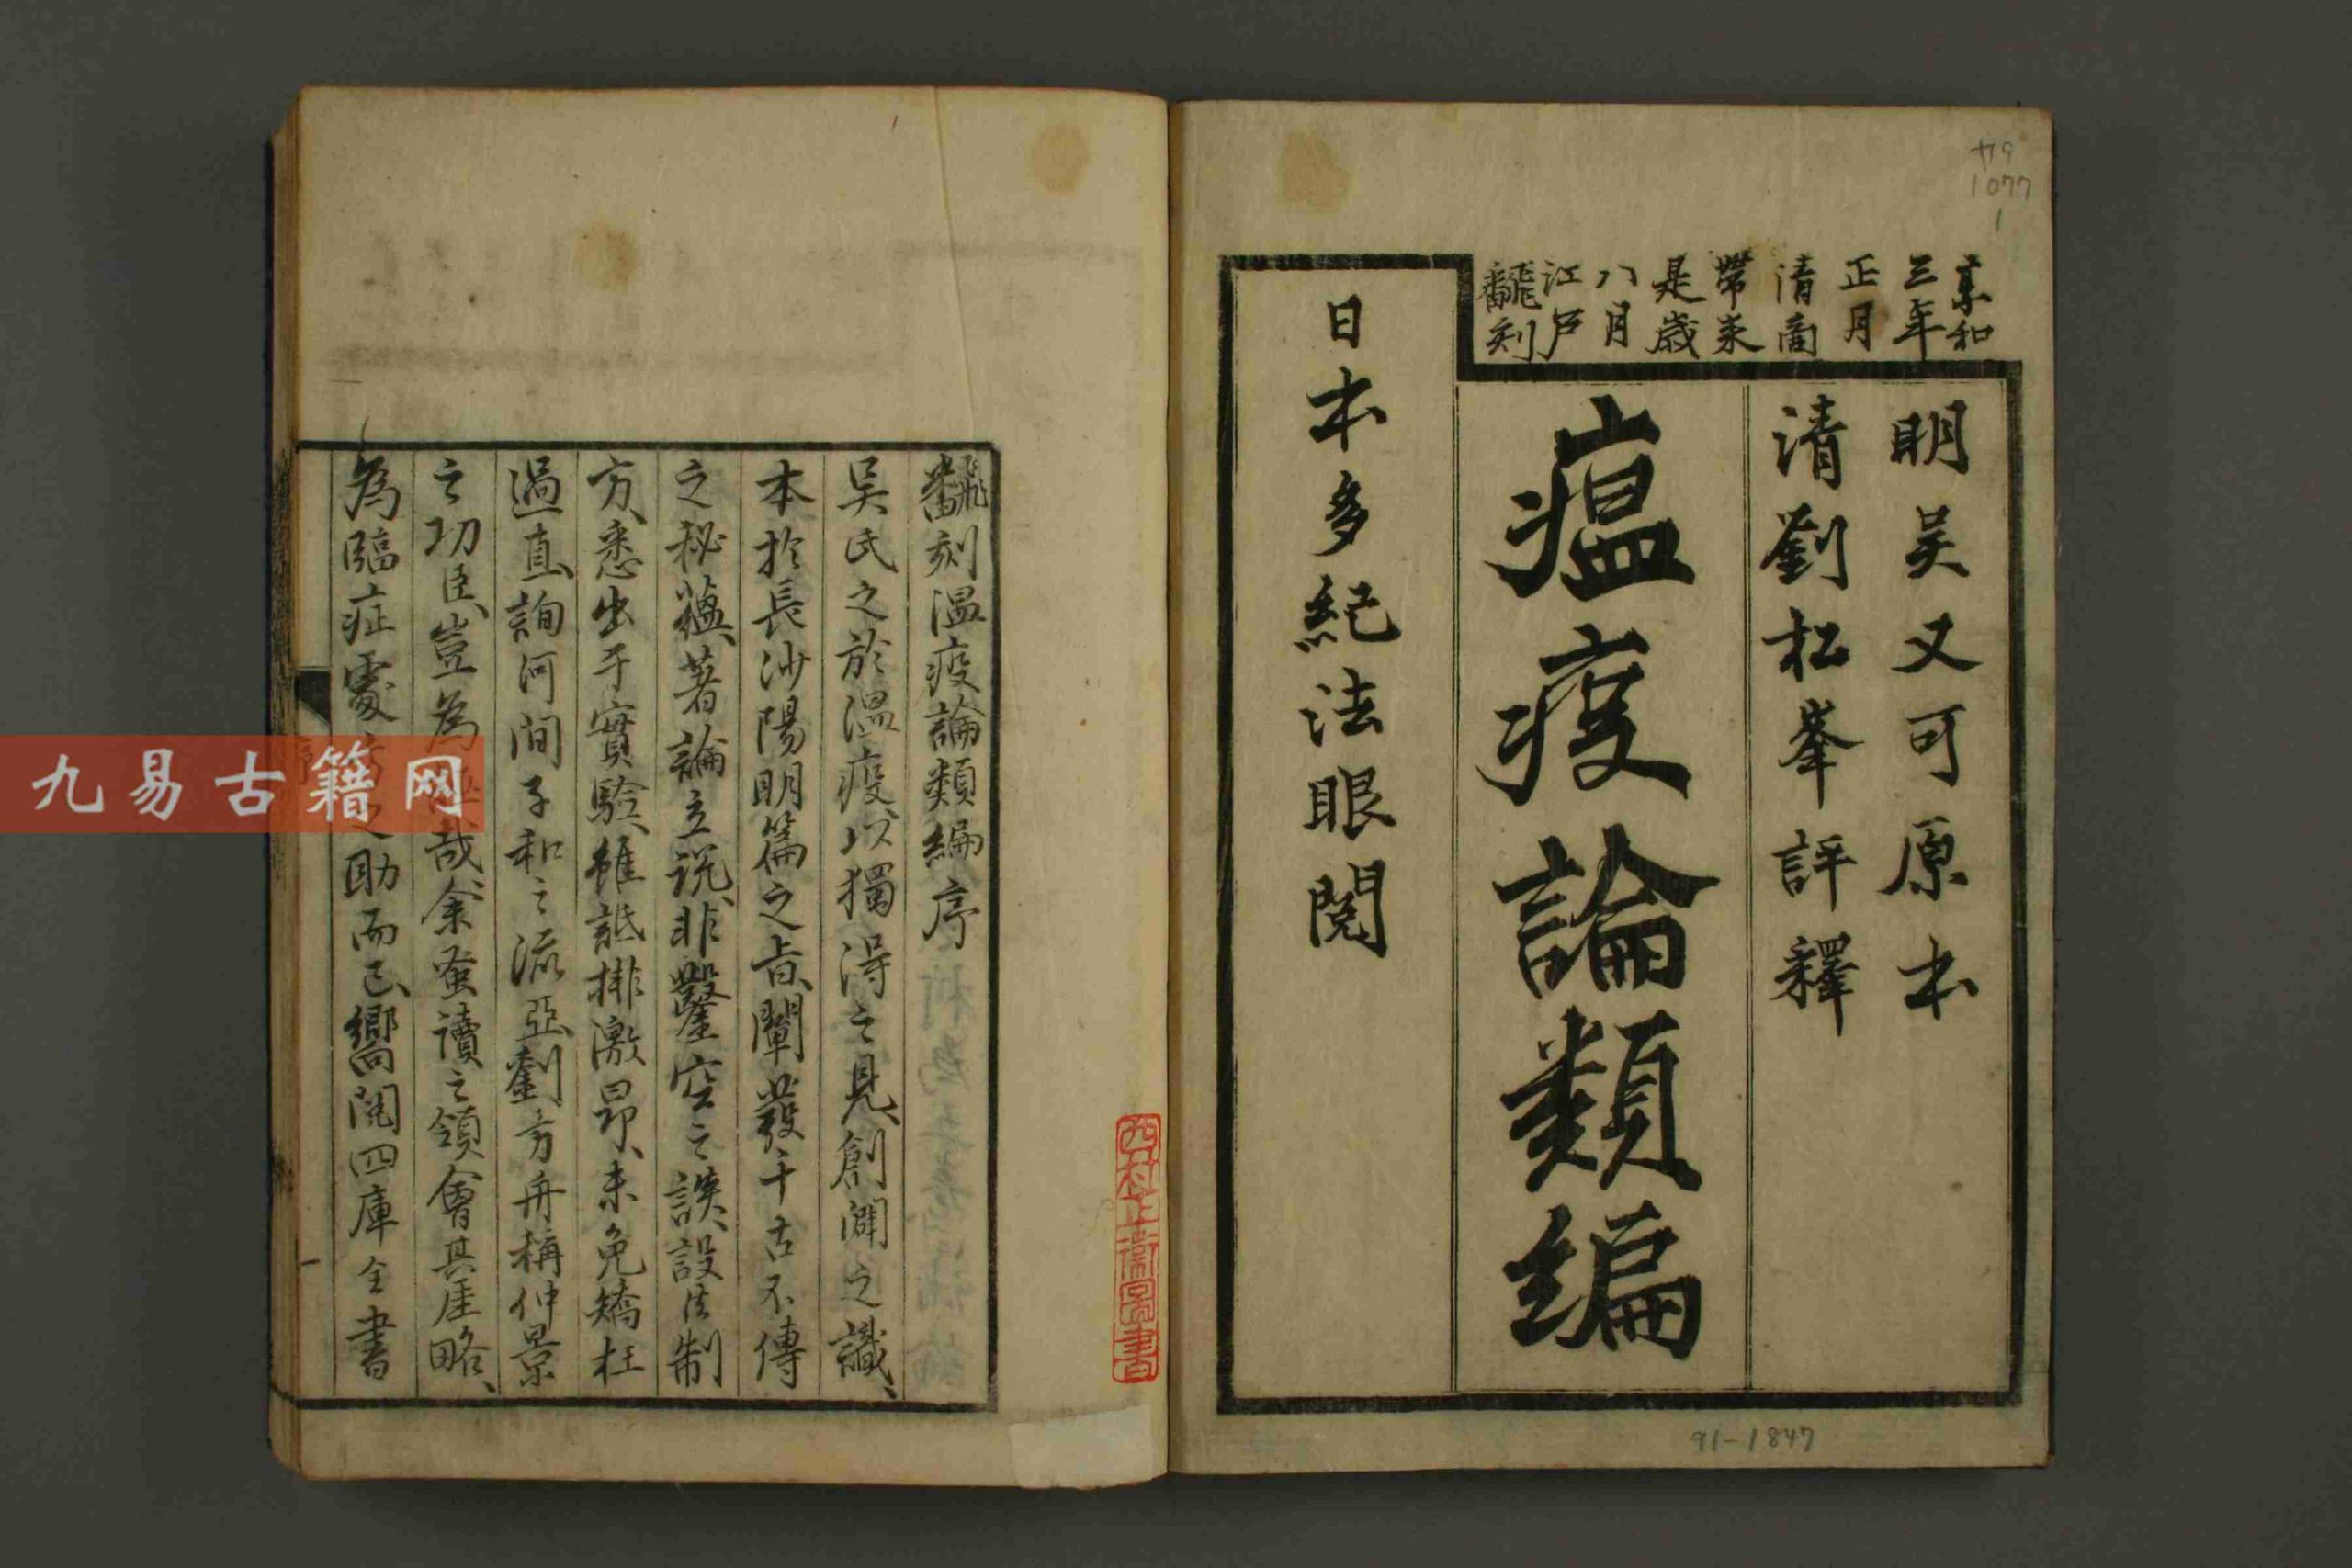 享和
三年
正月
清商
帶來
是歲
八月
江戶
飜刻
明吴又可原本
清劉松峯評釋
瘟疫論類編
日本多紀法眼閱
飜刻溫疫論類編序
吴氏之於溫疫、以獨得之見、創闢之識、
本於長沙陽明篇之旨、闡發千古不傳
之秘蘊、著論立說、非鑿空之談、設法制
方、悉出于實驗、雖詆排激昂、未免矯枉
過直、詢河間子和之流亞、劉方舟稱仲景
之功臣、豈為哉、余蚤讀之、領會其厓略、
為臨症處之助而已、嚮閱四庫全書
西村
圖書
九易古籍网
1077
1
91-1847